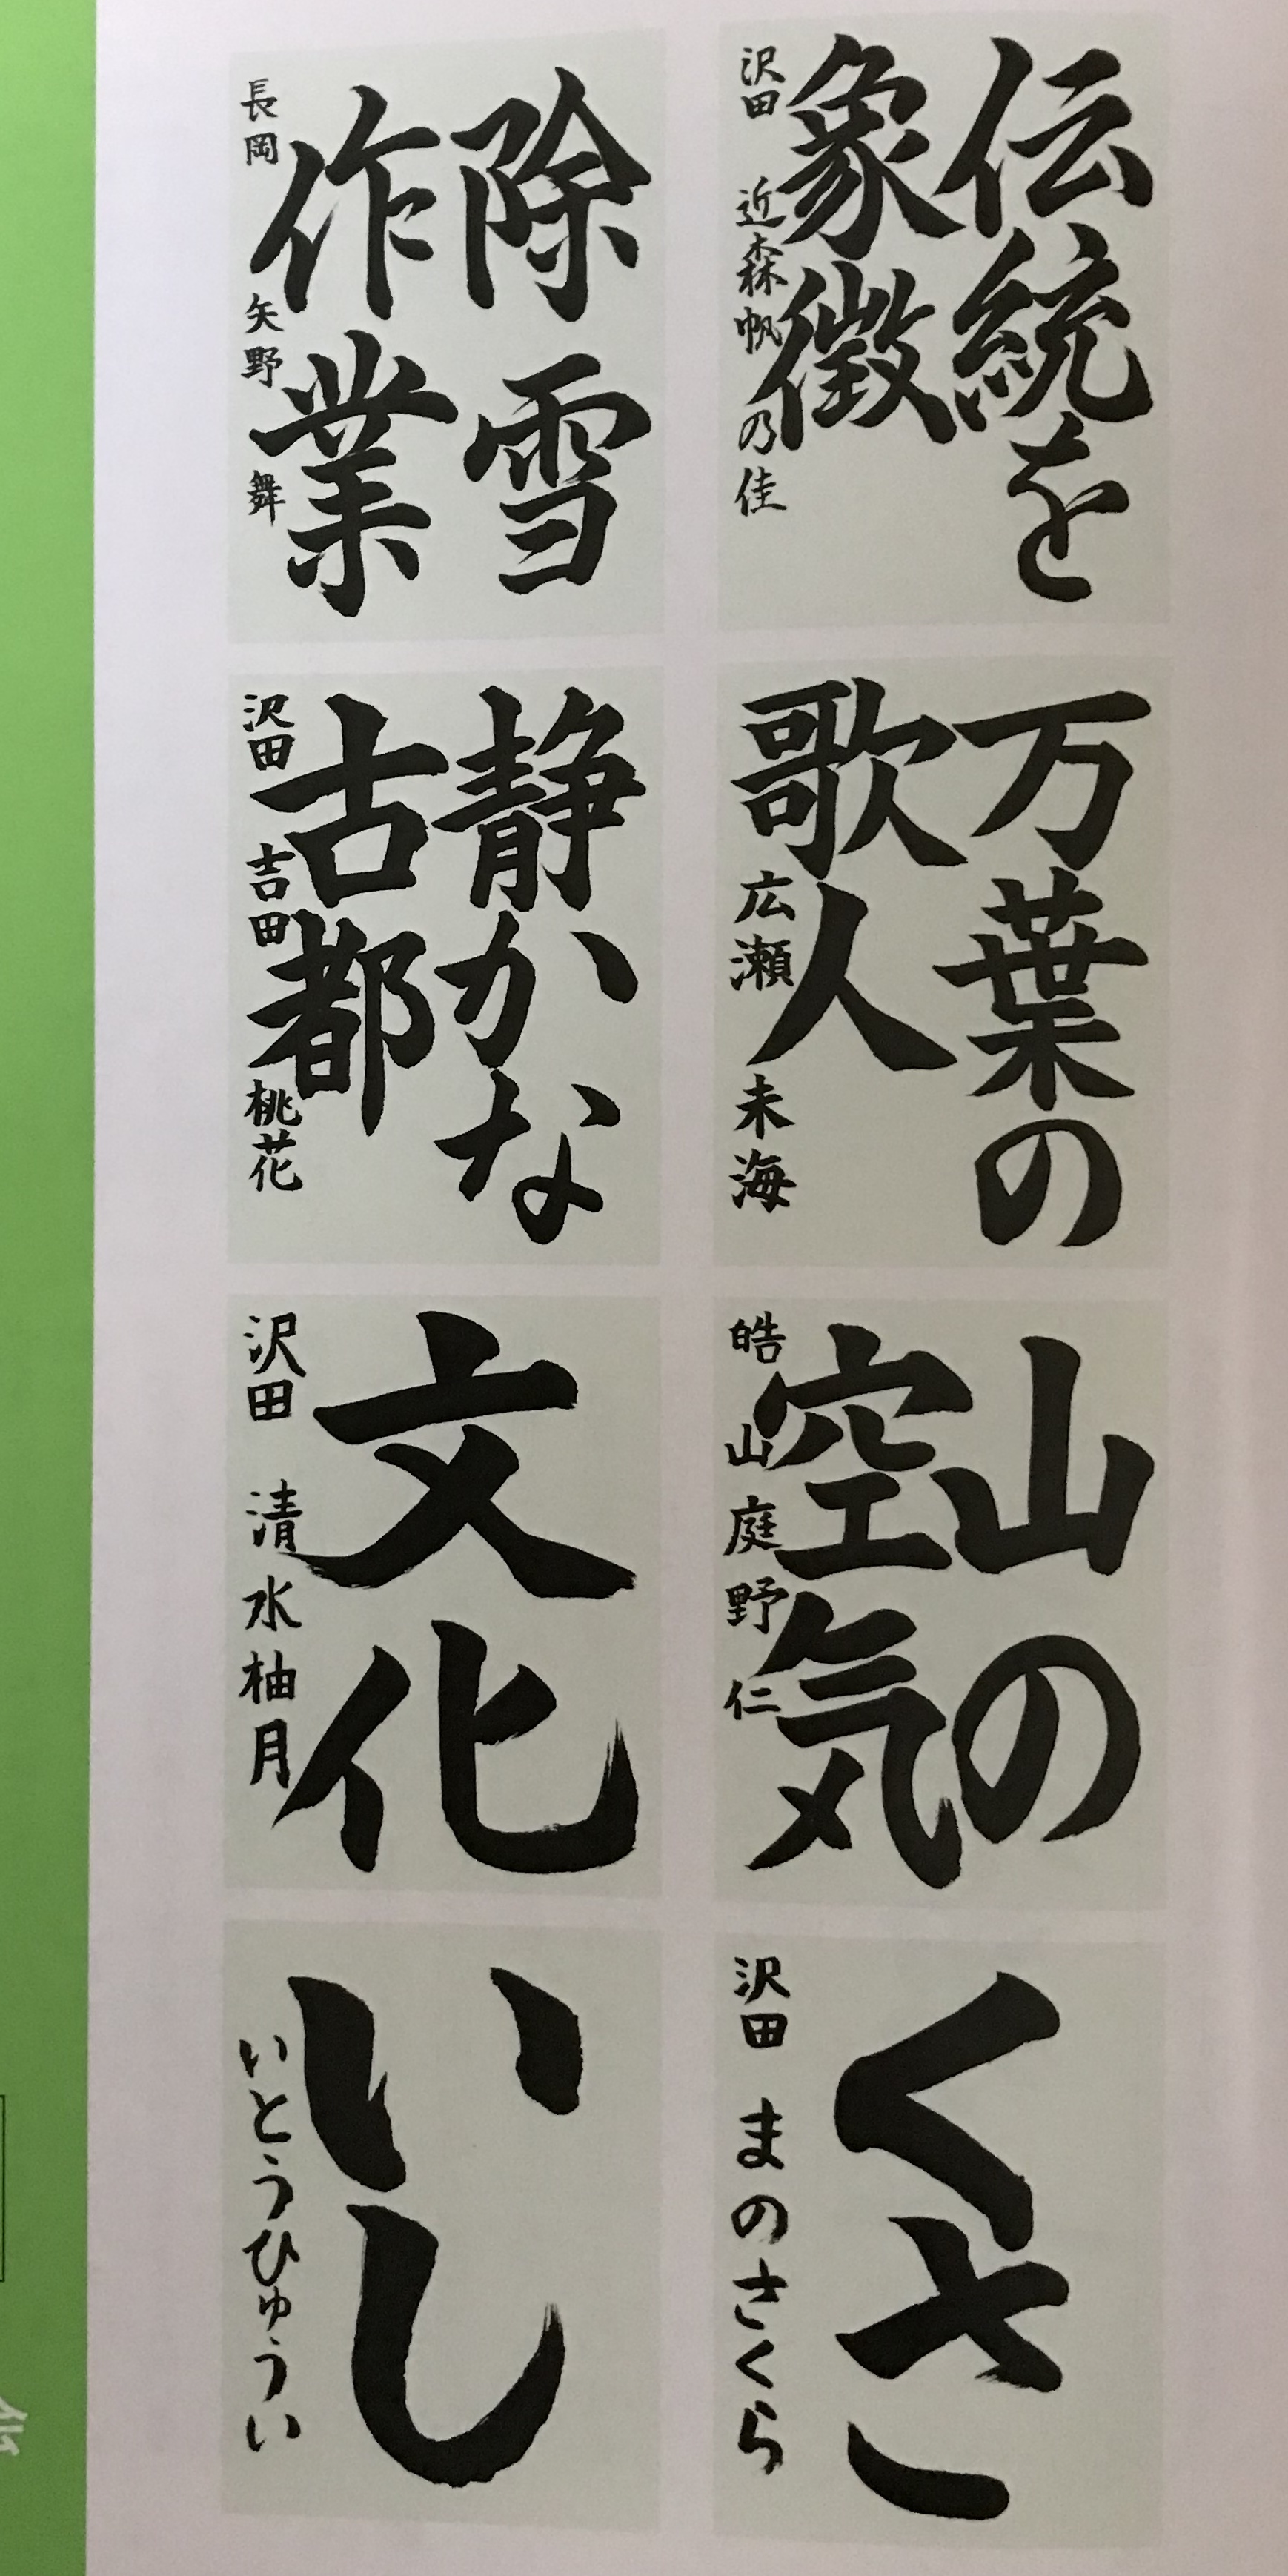 伝統を
象徴
沢田 近森帆乃佳
除雪
作業
長岡 矢野 舞
万葉の
歌人
広瀬未海
静かな
古都
沢田 吉田桃花
山の
空気
皓山 庭野仁
文化
沢田 清水柚月
くさ
沢田 まのさくら
いし
いとうひゅうい